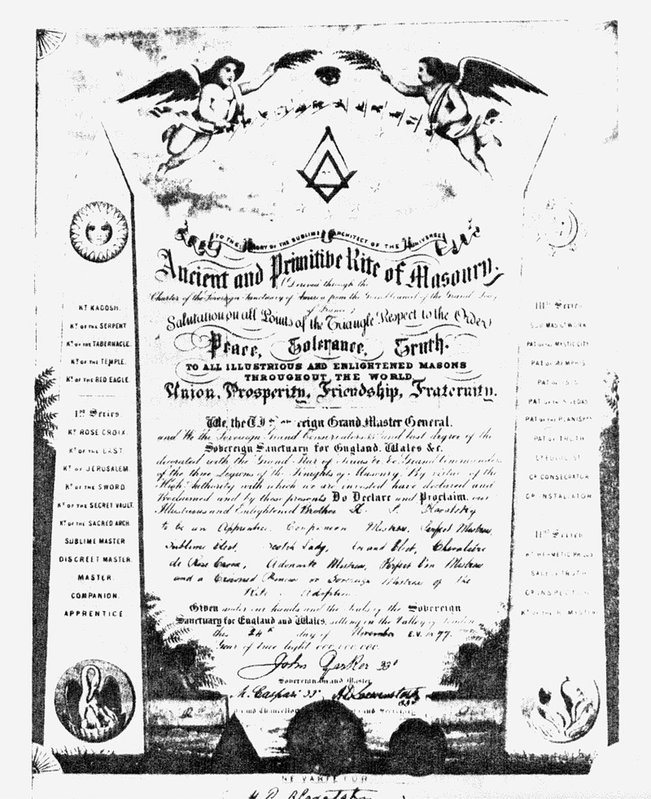 TO THE GLORY OF THE SUBLIME ARCHITECT OF THE UNIVERSE
Ancient and Primitive Rite of Masonry.
(Derived through the
Charter of the Sovereign Sanctuary of America from the Grand Council of the Grand
of France)
Salutation on all Points of the Triangle Respect to the Order
Peace, Tolerance, Truth.
TO ALL ILLUSTRIOUS AND ENLIGHTENED MASONS
THROUGHOUT THE WORLD
Union, Prosperity, Friendship, Fraternity.
We, the Grand Master General.
and We the Sovereign Grand Conservators and last degree of the
Sovereign Sanctuary for England, Wales &c.
decorated with the Grand Star of Sirius &c. &c. Grand Commanders
of the three Legions of the Knights of Masonry By virtue of the
High Authority with which we are invested have declared and
Proclaimed and by these presents Do Declare and Proclaim our
Illustrious and Enlightened Brother H. P. Blavatsky
to be an Apprentice Companion Mistress, Perfect Mistress
Sublime Elect, Scotch Lady, Grand Elect, Chevaliere
de Rose Croix, Adonaite Mistress, Perfect Mistress
and a Crowned Princess of
Rite of Adoption.
Given under our hands and the Seals of the Sovereign
Sanctuary for England and Wales, sitting in the Valley of London
this 24th day of November 1877
Year of true light 000,000,000.
John Yarker 33°
Sovereign Grand Master
M. Caspari 33°
Grand Chancellor
Grand Secretary
KT KADOSH.
KT OF THE SERPENT
KT OF THE TABERNACLE.
KT OF THE TEMPLE.
KT OF THE RED EAGLE.
1st Series
KT ROSE CROIX
KT OF THE EAST
KT OF JERUSALEM.
KT OF THE SWORD
KT OF THE SECRET VAULT.
KT OF THE SACRED ARCH.
SUBLIME MASTER
DISCREET MASTER.
MASTER.
COMPANION.
APPRENTICE
Series
PAT OF MEMPHIS
PAT OF THE VEDAS
PAT OF TRUTH
GP CONSECRATOR
GP INSTALLATOR
Series
NE VARIETUR
H. P. Blavatsky